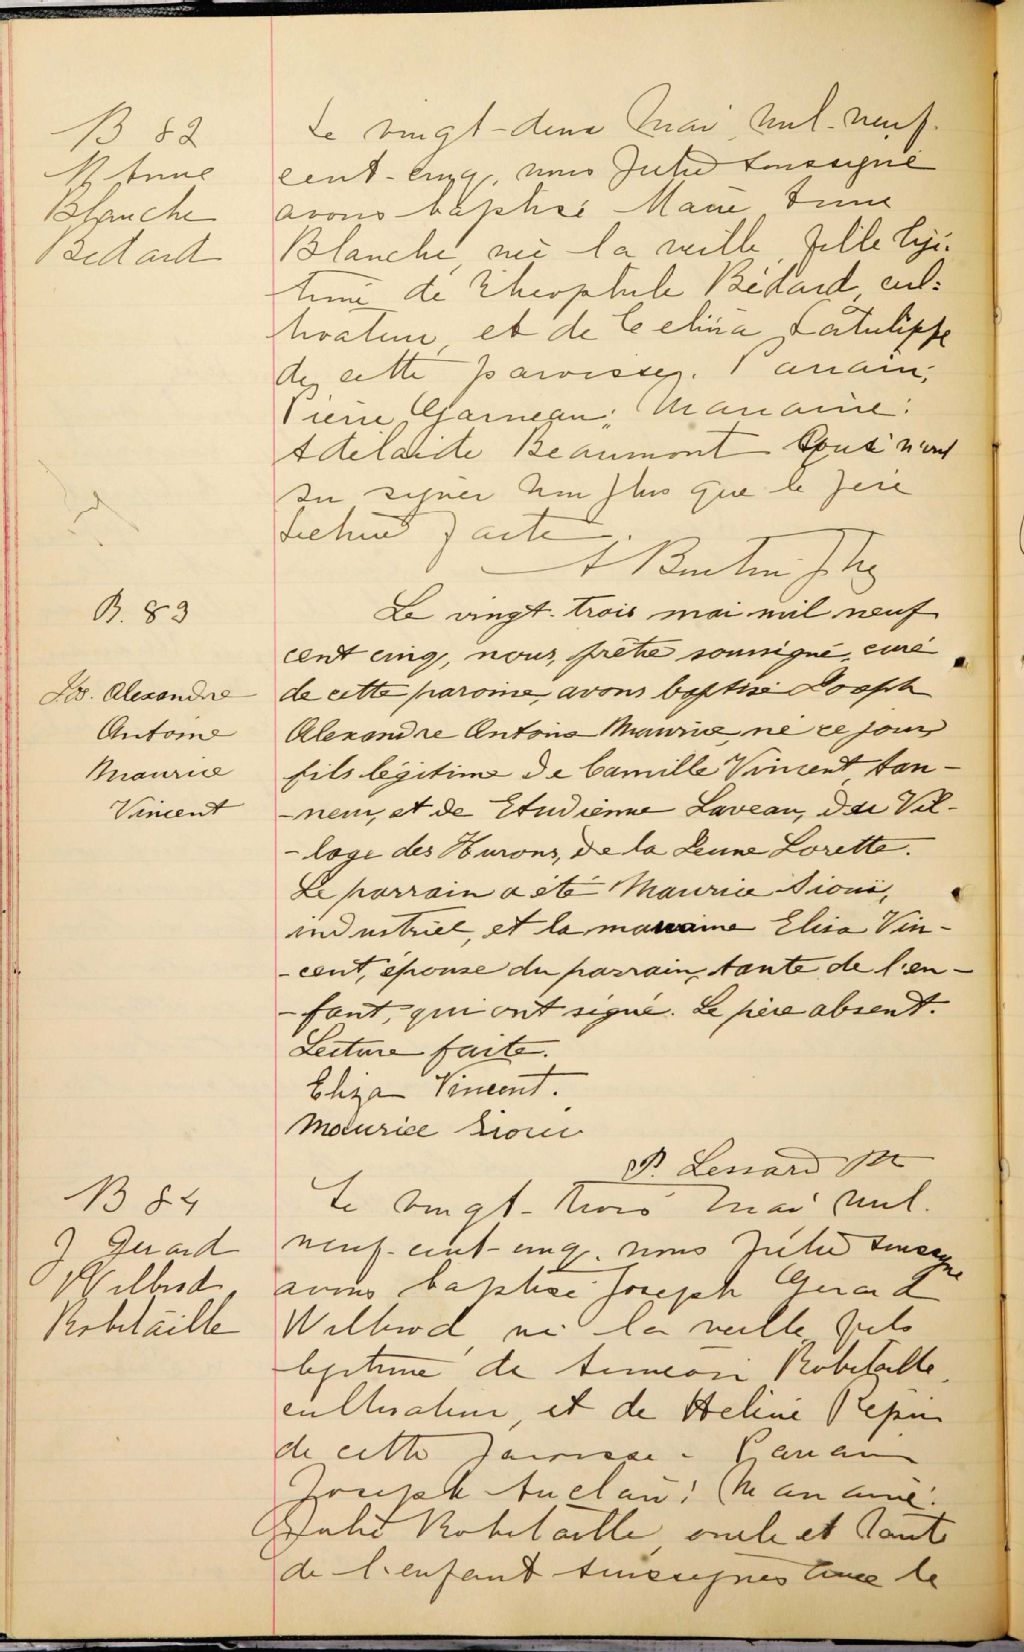 B 82
M Anne
Blanche
Bedard
Le vingt-deux Mai mil-neuf-
cent-cinq, nous Prêtre soussigné
avons baptisé Marie Anne
Blanche, née la veille, fille légi-
time de Théophile Bédard, cul=
tivateur, et de Celina Latulippe
de cette paroisse. Parrain:
Pierre Garneau; Marraine:
Adelaide Beaumont qui n'ont
su signer non plus que le père
Lecture faite.
Ptre
B. 83
Jos. Alexandre
Antoine
Maurice
Vincent
Le vingt-trois mai mil neuf
cent cinq, nous, prêtre soussigné, curé
de cette paroisse, avons baptisé Joseph
Alexandre Antoine Maurice, né ce jour,
fils légitime de Camille Vincent, tan-
-neur, et de Etudienne Laveau, du Vil-
-lage des Hurons, de la Jeune Lorette.
Le parrain a été Maurice Siouï,
industriel, et la marraine Eliza Vin-
-cent, épouse du parrain, tante de l'en-
-fant, qui ont signé. Le père absent.
Lecture faite.
Eliza Vincent.
Maurice Sioui
P. Lessard Ptre
B 84
J Gerard
Wilbrod
Robitaille
Le vingt-trois Mai mil-
neuf-cent-cinq, nous Prêtre soussigné
avons baptisé Joseph Gerard
Wilbrod, né la veille, fils
legitime de Simeon Robitaille,
cultivateur, et de Helène Pepin
de cette paroisse. Parrain
Joseph Auclair; Marraine:
Julie Robitaille, oncle et tante
de l'enfant soussignés avec le